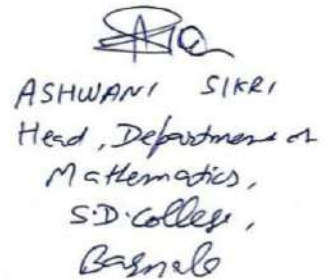 ASHWANI SIKRI
Head, Department of
Mathematics,
S.D. College,